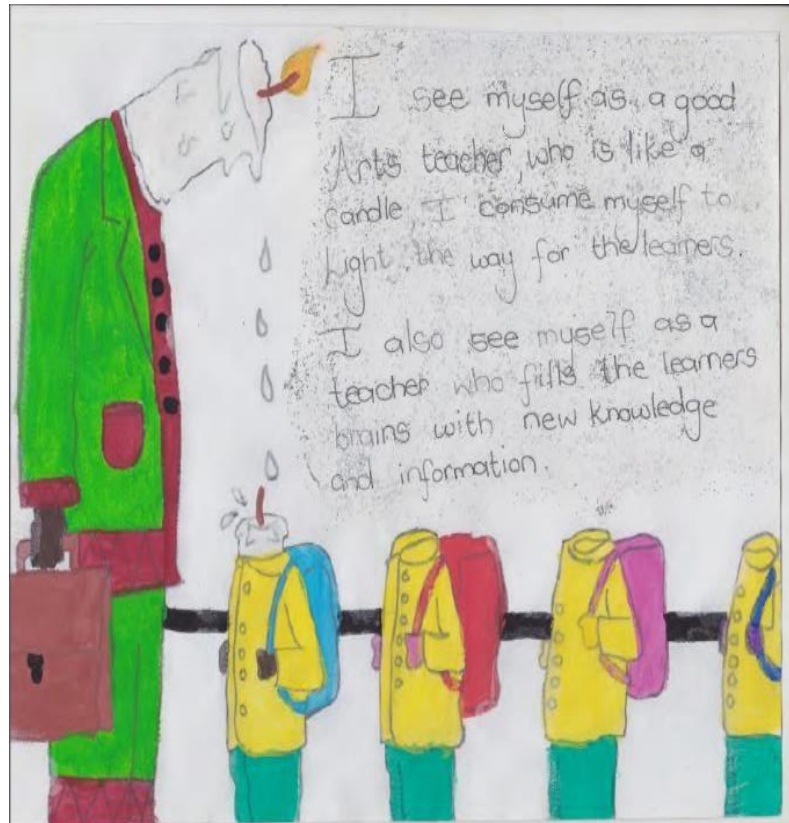 I see myself as a good
Arts teacher, who is like a
candle, I consume myself to
Light the way for the learners.
I also see myself as a
teacher who fills the learners
brains with new knowledge
and information.